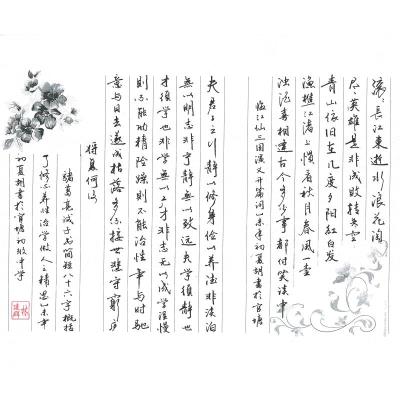 滚滚长江東逝水浪花淘
尽英雄是非成敗转头空
青山依旧在几度夕阳红白发
渔樵江渚上惯看秋月春風一壶
浊酒喜相逢古今多少事都付笑谈中
临江仙三国演义开篇词 初夏胡書於官塘
夫君子之行静以修身儉以养德非淡泊
無以明志非宁静無以致远夫学須静也
才須学也非学無以广才非志无以成学淫慢
則不能励精险燥則不能冶性年与时馳
意与日去遂成枯落多不接世悲守窮庐
将复何及
諸葛亮诫子书簡短八十六字概括
了修心养性治学做人之精湛
初夏胡書於官塘初级中学